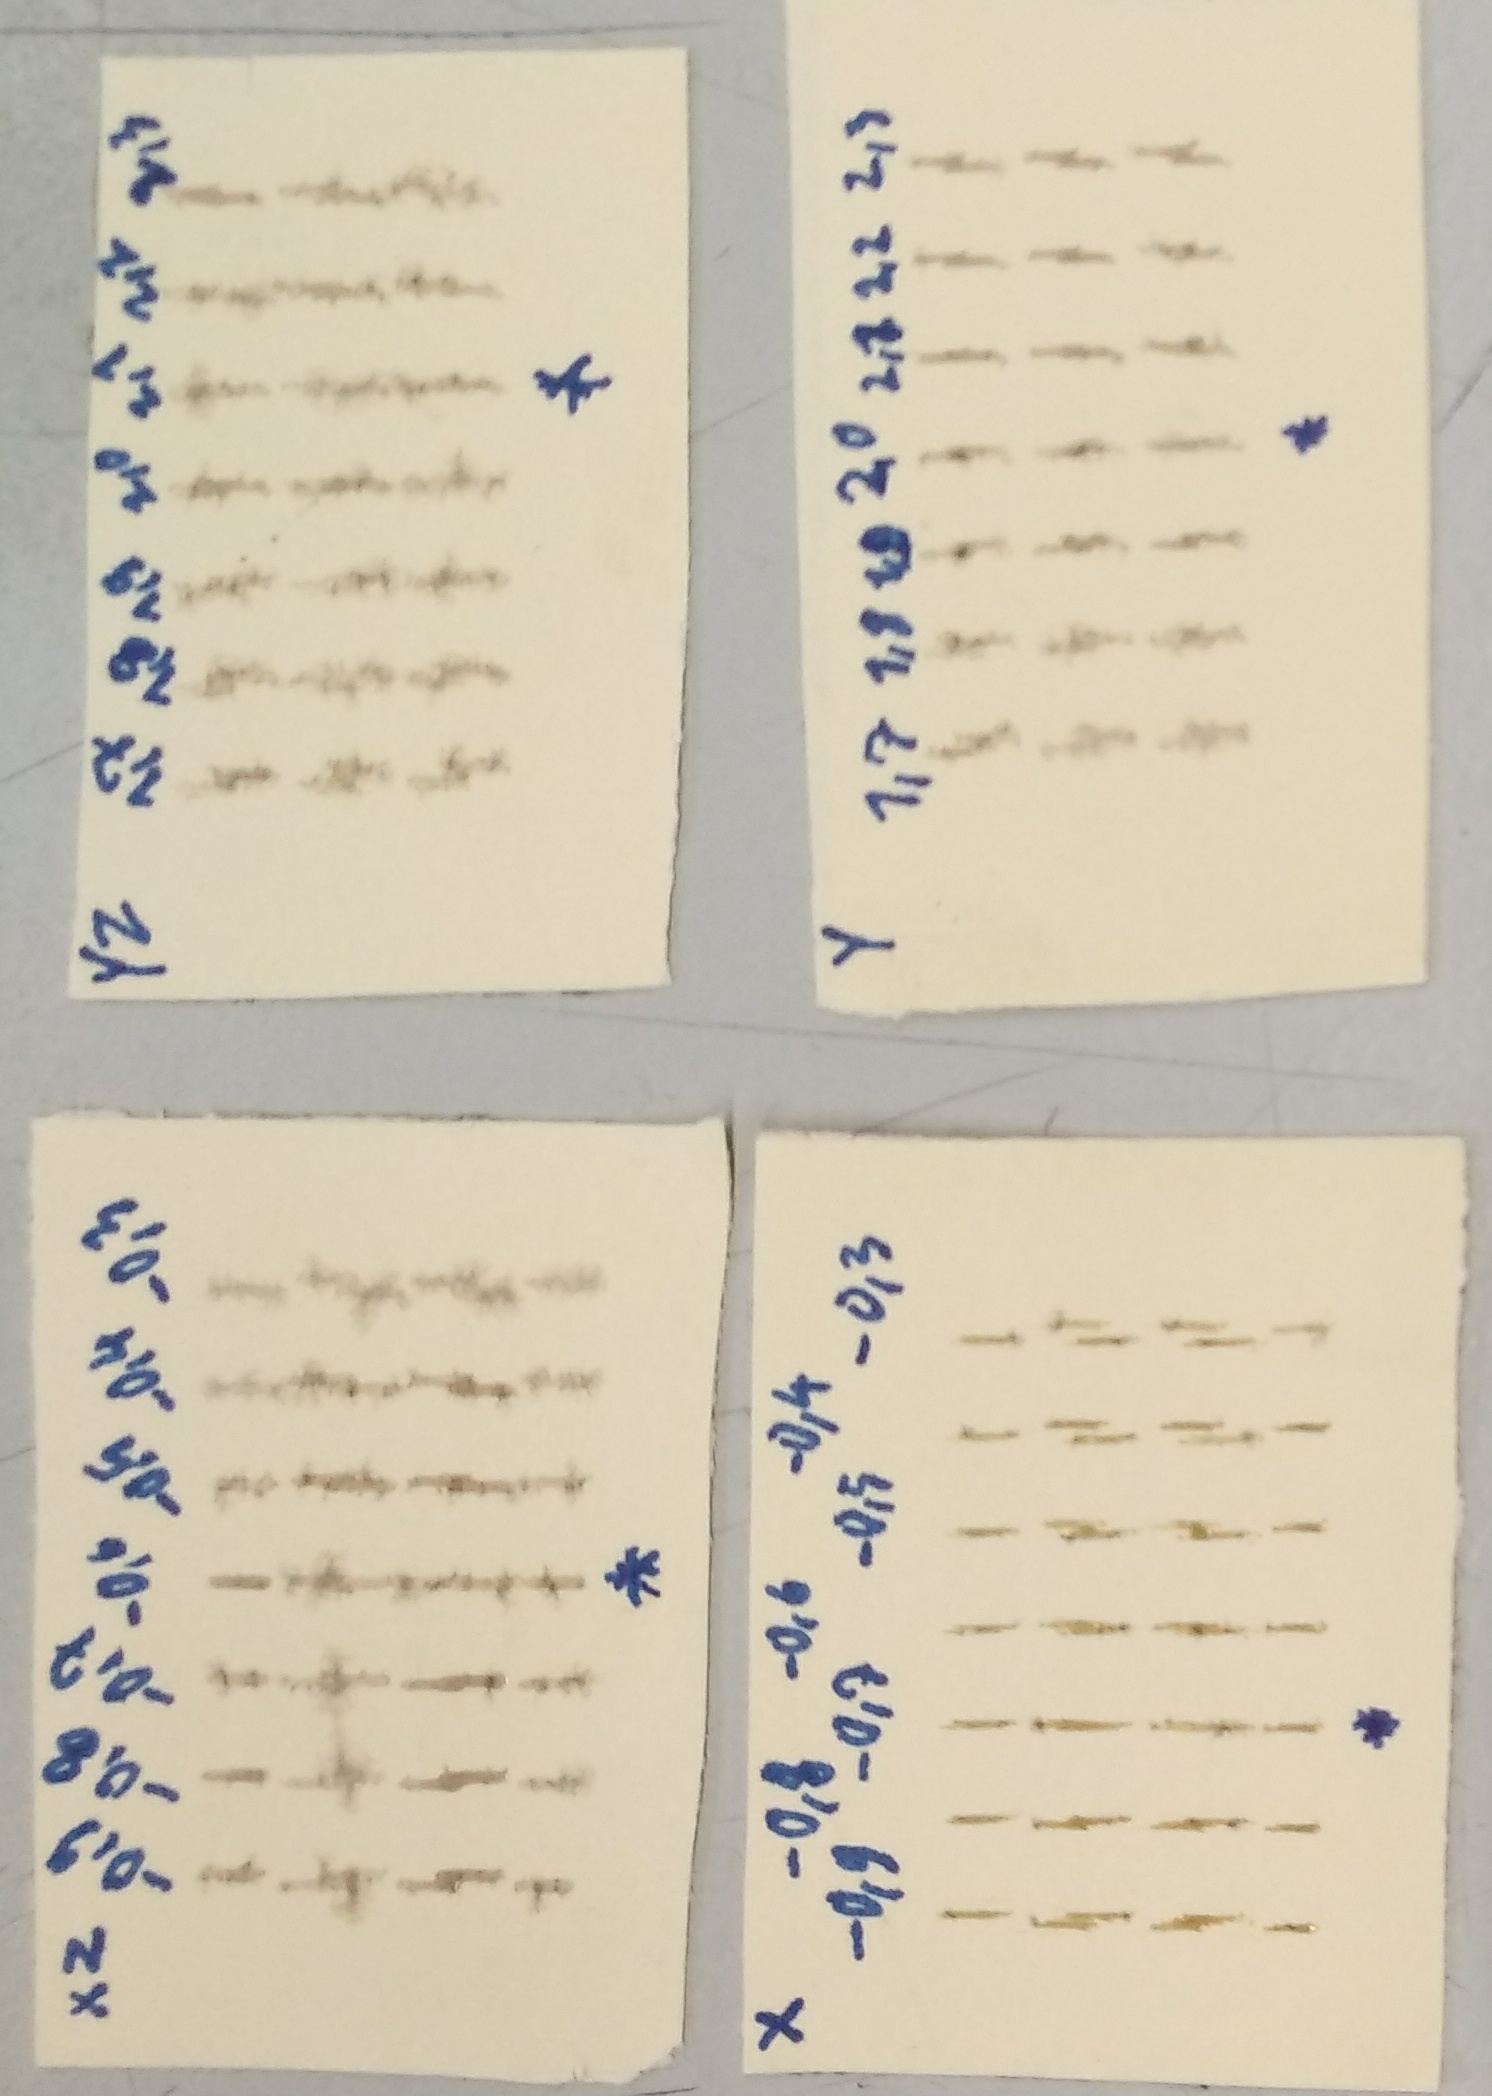 XZ -0,9 -0,8 -0,7 -0,6 -0,5 -0,4 -0,3
*
YZ 1,7 1,8 1,9 2,0 2,1 2,2 2,3
*
X -0,8 -0,6 -0,4
-0,9 -0,7 -0,5 -0,3
*
Y 1,7 1,8 1,9 2,0 2,1 2,2 2,3
*